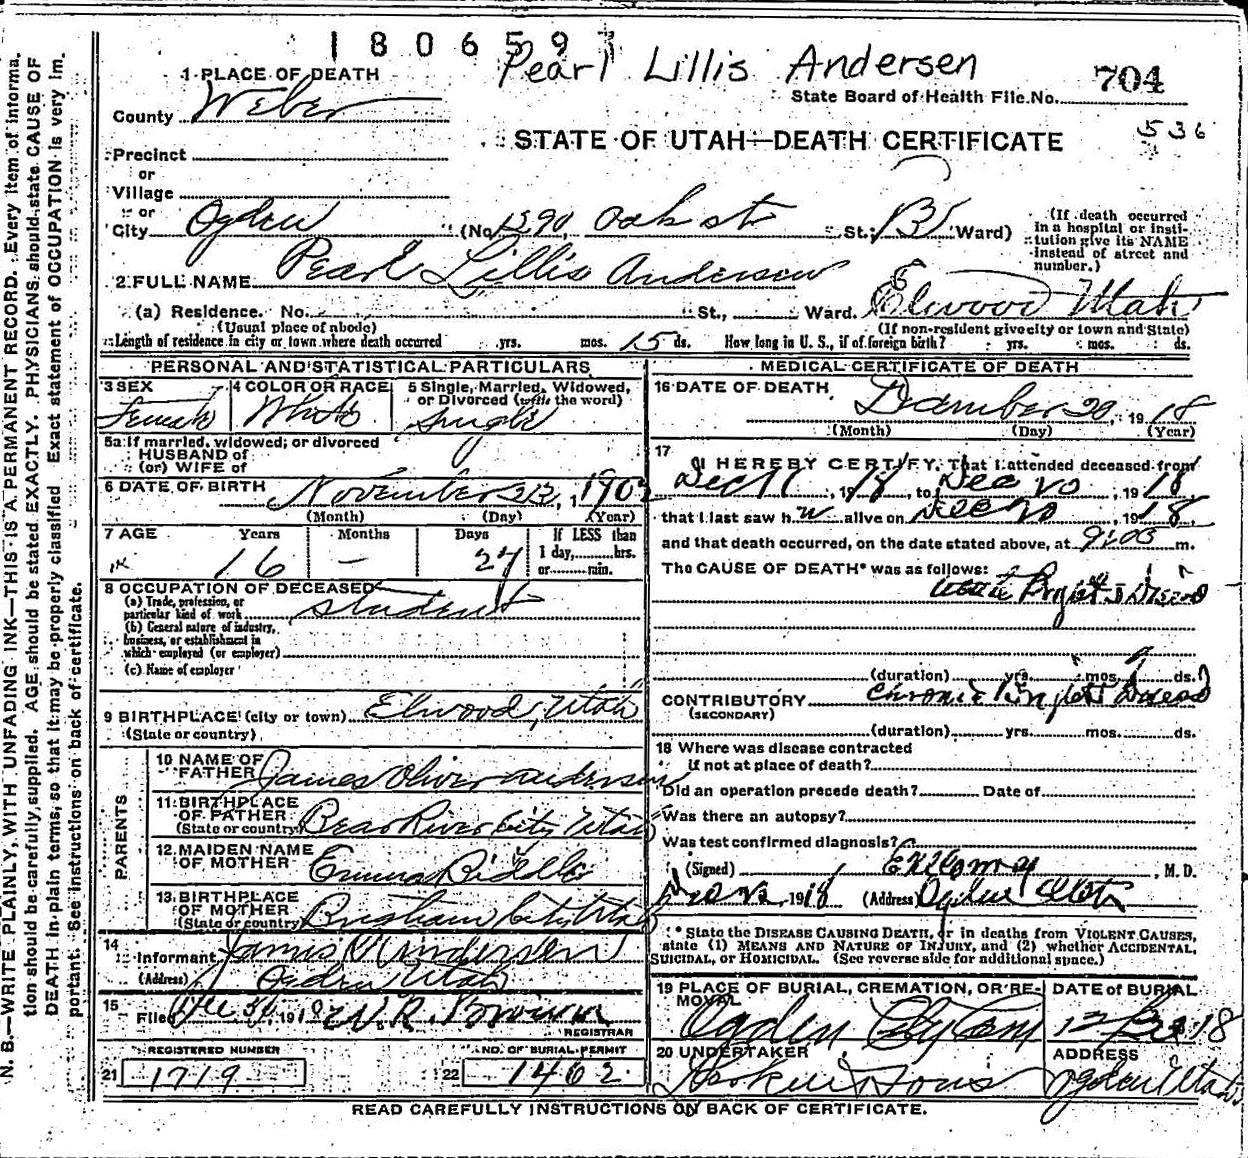 1806593
Pearl Lillis Andersen
1 PLACE OF DEATH
State Board of Health File No. 704
County Weber
536
STATE OF UTAH—DEATH CERTIFICATE
Precinct
or
Village
or
City Ogden (No. 1390 Oak st St.; Ward)
(If death occurred in a hospital or insti-
tution give its NAME
instead of street and
number.)
2 FULL NAME Pearl Lillis Andersen
(a) Residence. No. St., Ward. Elwood Utah
(Usual place of abode)
(If non-resident give city or town and State)
Length of residence in city or town where death occurred yrs. mos. 15 ds. How long in U. S., if of foreign birth? yrs. mos. ds.
PERSONAL AND STATISTICAL PARTICULARS
3 SEX Female
4 COLOR OR RACE White
5 Single, Married, Widowed,
or Divorced (write the word) Single
5a If married, widowed, or divorced
HUSBAND of
(or) WIFE of
6 DATE OF BIRTH November 23, 1902
(Month) (Day) (Year)
7 AGE Years 16 Months — Days 27
If LESS than
1 day, hrs.
or min.
8 OCCUPATION OF DECEASED
(a) Trade, profession, or
particular kind of work student
(b) General nature of industry,
business, or establishment in
which employed (or employer)
(c) Name of employer
9 BIRTHPLACE (city or town) Elwood, Utah
(State or country)
PARENTS
10 NAME OF
FATHER James Oliver Andersen
11 BIRTHPLACE
OF FATHER
(State or country) Bear River City Utah
12 MAIDEN NAME
OF MOTHER Emma
13 BIRTHPLACE
OF MOTHER
(State or country) Brigham City Utah
14
Informant James O Andersen
(Address) Ogden Utah
15
Filed Dec 30, 1918 W. R. Brown
REGISTRAR
REGISTERED NUMBER
21 1719
NO. OF BURIAL PERMIT
22 1462
MEDICAL CERTIFICATE OF DEATH
16 DATE OF DEATH December 20, 1918
(Month) (Day) (Year)
17
I HEREBY CERTIFY, That I attended deceased from
Dec 11, 1918, to Dec 20, 1918
that I last saw her alive on Dec 20, 1918,
and that death occurred, on the date stated above, at 9:05 m.
The CAUSE OF DEATH* was as follows:
Acute Bright's Disease
(duration) yrs. mos. ds.
CONTRIBUTORY Chronic Brights Disease
(SECONDARY)
(duration) yrs. mos. ds.
18 Where was disease contracted
if not at place of death?
Did an operation precede death? Date of
Was there an autopsy?
Was test confirmed diagnosis?
(Signed) , M. D.
1918 (Address) Ogden Utah
* State the DISEASE CAUSING DEATH, or in deaths from VIOLENT CAUSES,
state (1) MEANS AND NATURE OF INJURY, and (2) whether ACCIDENTAL,
SUICIDAL, or HOMICIDAL. (See reverse side for additional space.)
19 PLACE OF BURIAL, CREMATION, OR RE-
MOVAL
Ogden City Cem
DATE of BURIAL
20 UNDERTAKER
ADDRESS
Ogden Utah
READ CAREFULLY INSTRUCTIONS ON BACK OF CERTIFICATE.
N. B.—WRITE PLAINLY, WITH UNFADING INK—THIS IS A PERMANENT RECORD. Every item of informa-
tion should be carefully supplied. AGE should be stated EXACTLY. PHYSICIANS should state CAUSE OF
DEATH in plain terms, so that it may be properly classified. Exact statement of OCCUPATION is very im-
portant. See instructions on back of certificate.